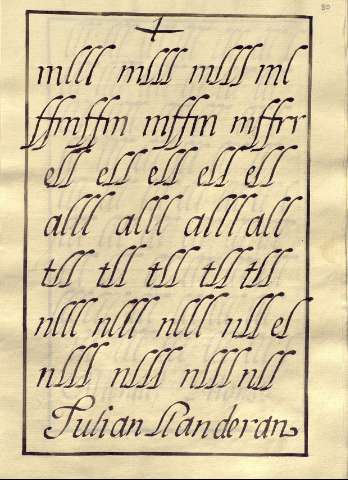 80
mlll mlll mlll ml
ffmffm mffm mffrr
ell ell ell ell ell
alll alll alll all
tll tll tll tll tll
nlll nlll nlll nll el
nlll nlll nlll nll
Julian